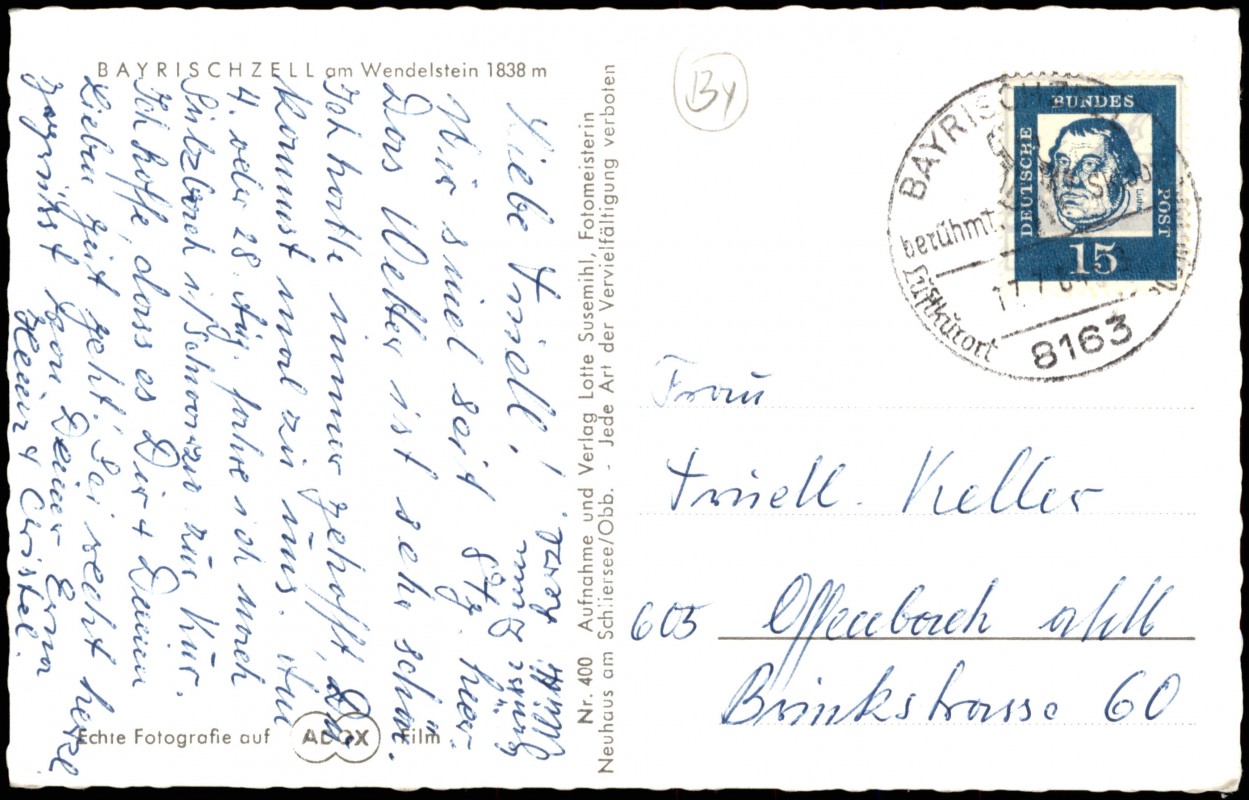 BAYRISCHZELL am Wendelstein 1838 m
Liebe Trudl!
Wir sind seit 8 Tg. hier.
Das Wetter ist sehr schön.
Ich hatte immer gehofft, Du
kommst mal zu uns. Am
4. oder 28. Aug. fahre ich nach
Sulzbach i/Schwarzw. zur Kur.
Ich hoffe, dass es Dir + Deinen
Lieben gut geht. Sei recht herzl.
gegrüßt von Deiner Erna
Heinr. + Christel.
Echte Fotografie auf ADOX Film
Nr. 400 Aufnahme und Verlag Lotte Susemihl, Fotomeisterin
Neuhaus am Schliersee/Obb. - Jede Art der Vervielfältigung verboten
By
DEUTSCHE BUNDES POST
Luther
15
BAYRISCHZELL
berühmt.
Luftkurort
8163
Frau
Trudl. Keller
605 Offenbach a/M
Brinkstrasse 60